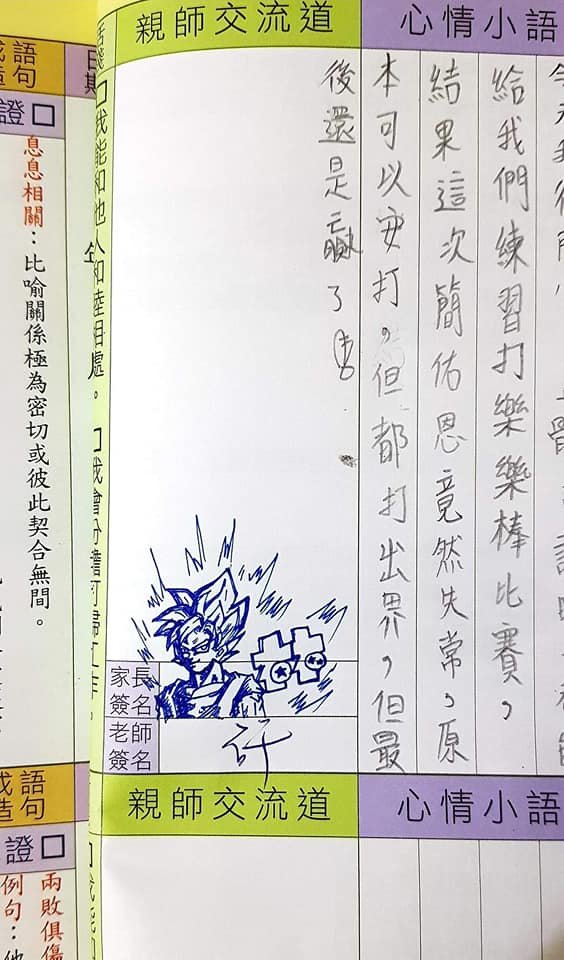 心情小語
給我們練習打樂樂棒比賽，
結果這次簡佑恩竟然失常，原
本可以安打，但都打出界，但最
後還是贏了
親師交流道
家長
簽名
老師
簽名
許
□我能和他人和睦相處。□我會分擔打掃工作。
日期
語
句
證□
息息相關：比喻關係極為密切或彼此契合無間。
心情小語
親師交流道
語
句
證□
兩敗俱傷
例句：他